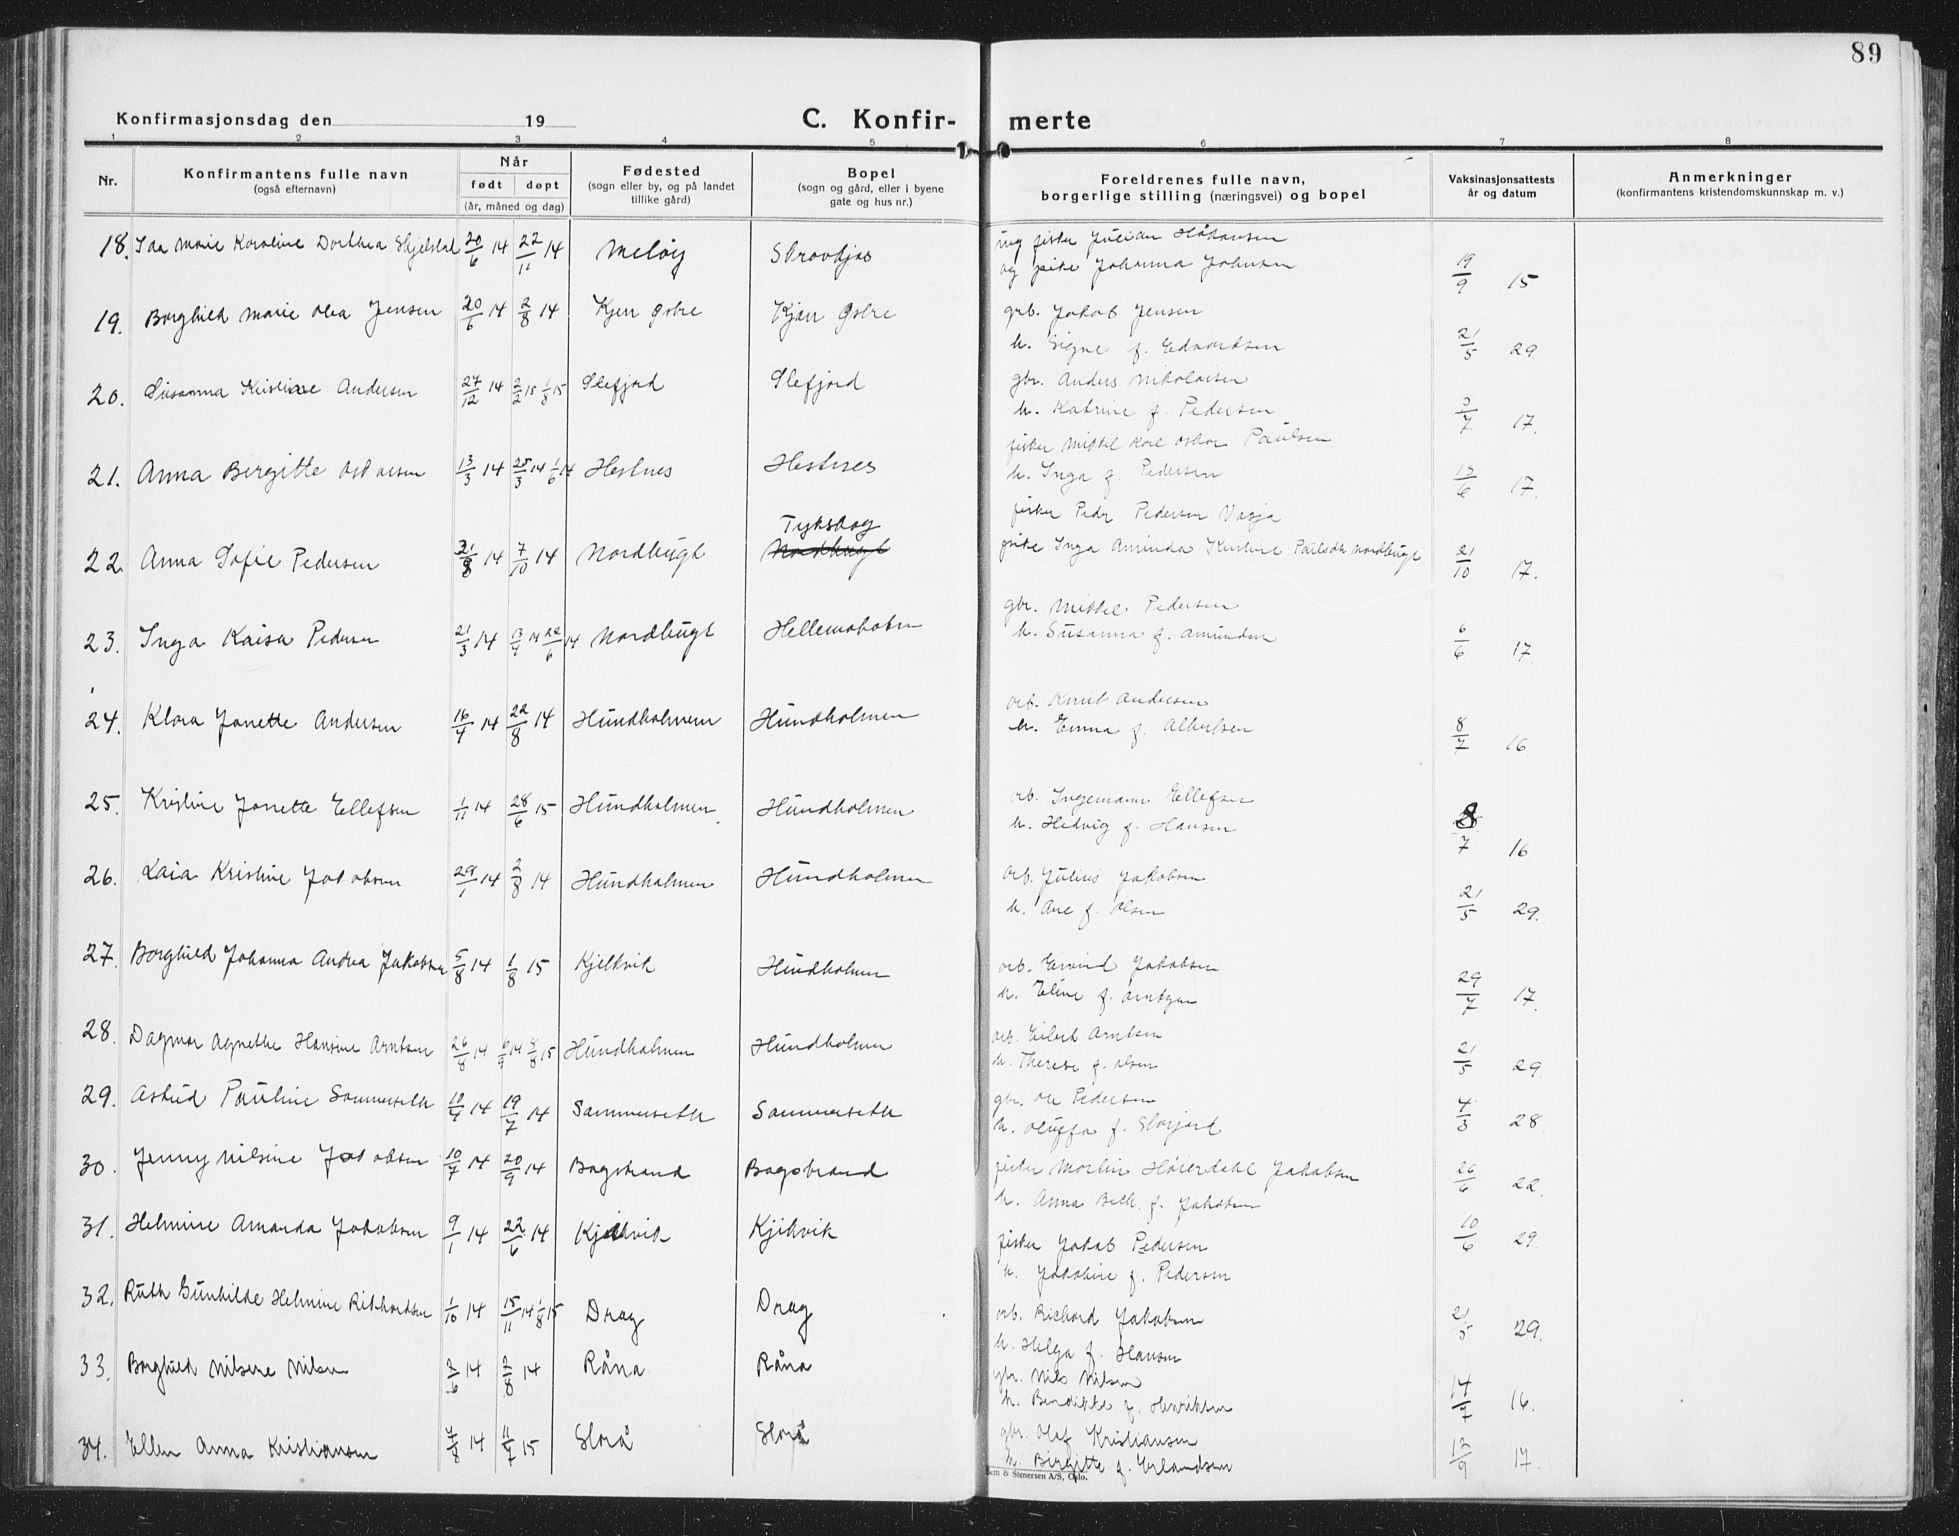 89
Konfirmasjonsdag den 19
C. Konfir- merte
1 2 3 4 5 6 7 8
Nr. Konfirmantens fulle navn (også efternavn) Når født døpt (år, måned og dag) Fødested (sogn eller by, og på landet tillike gård) Bopel (sogn og gård, eller i byene gate og hus nr.) Foreldrenes fulle navn, borgerlige stilling (næringsvei) og bopel Vaksinasjonsattests år og datum Anmerkninger (konfirmantens kristendomskunnskap m. v.)
18. Ida Marie Karoline Dorthea Skjelstad 20/6 14 22/11 14 Meløy ug fisker Julian Håkansen
og pike Johanna Johnsen 19/9 15
19. Borghild Marie Olea Jensen 20/6 14 2/8 14 Kjær østre Kjær østre grb. Jakob Jensen
h. Signe f. Edvardsen 21/5 29
20. Susanna Kristine Andersen 27/12 14 2/2 15 1/8 15 Slefjord Slefjord gbr. Anders Nikolaisen
h. Katrine f. Pedersen 17.
21. Anna Birgitte Oskarsen 13/3 14 25/3 14 1/6 14 Hestnes Hestnes fisker Mikkel Karl Oskar Paulsen
h. Inga f. Pedersen 15/6 17.
22. Anna Sofie Pedersen 21/8 14 7/10 14 Nordbugt Tykskog Nordbugt fisker Peder Pedersen
pike Inga Aminda Kristine Paulsdtr Nordbugt 21/10 17.
23. Inga Kaisa Pedersen 21/3 14 13/4 14 22/6 14 Nordbugt Hellemobotn gbr. Mikkel Pedersen
h. Susanna f. Amundsen 6/6 17.
24. Klara Janette Andersen 16/4 14 22/8 14 Hundholmen Hundholmen arb. Knut Andersen
h. Emma f. Albertsen 8/7 16.
25. Kristine Janette Ellefsen 1/11 14 28/6 15 Hundholmen Hundholmen arb. Ingemann Ellefsen
h. Hedvig f. Hansen 8/7 16
26. Laia Kristine Jakobsen 29/1 14 2/8 14 Hundholmen Hundholmen arb. Julius Jakobsen
h. Ane f. Olsen 21/5 29.
27. Borghild Johanna Andrea Jakobsen 5/8 14 1/8 15 Kjelkvik Hundholmen arb. Eivind Jakobsen
h. Eline f. Arntzen 29/7 17.
28. Dagmar Agnethe Hansine Arntsen 26/8 14 6/9 14 8/8 15 Hundholmen Hundholmen arb. Eilert Arntsen
h. Therese f. Olsen 21/5 29.
29. Astrid Pauline Sommerseth 10/4 14 19/7 14 Sommerseth Sommerseth gbr. Ole Pedersen
h. Oluffa f. Storjord 4/3 28.
30. Jenny Nilsine Jakobsen 10/7 14 20/9 14 Bagstrand Bagstrand fisker Martin Høierdahl Jakobsen
h. Anna Bech. f. Jakobsen 26/6 22.
31. Helmine Amanda Jakobsen 9/1 14 22/6 14 Kjelkvik Kjelkvik fisker Jakob Pedersen
h. Jakobine f. Pedersen 10/6 29.
32. Ruth Gunhilde Helmine Rikhardsen 1/10 14 15/11 14 1/8 15 Drag Drag arb. Richard Jakobsen
h. Helga f. Hansen 21/5 29.
33. Borghild Nilsine Nilsen 2/6 14 2/8 14 Råna Råna gbr. Nils Nilsen
h. Bendikke f. Henriksen 14/7 16.
34. Ellen Anna Kristiansen 7/8 14 11/7 15 Storå Storå gbr. Olaf Kristiansen
h. Birgitte f. Erlandsen 12/9 17.
Sem & Stenersen A/S, Oslo.